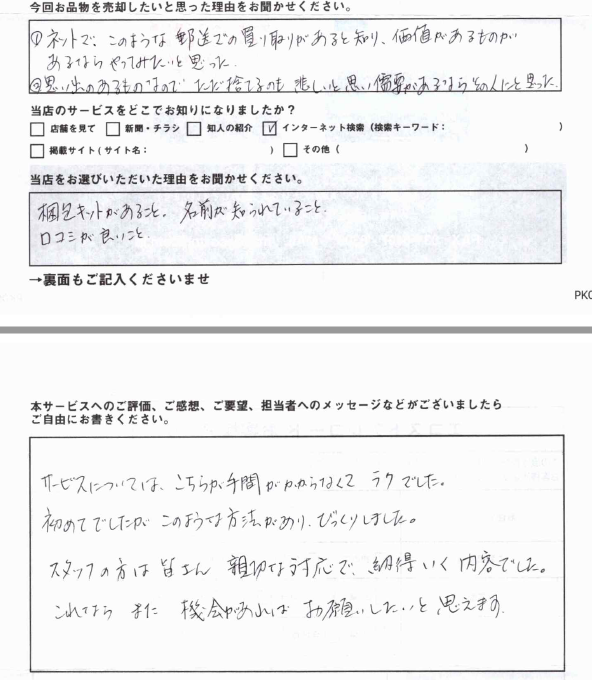 今回お品物を売却したいと思った理由をお聞かせください。
①ネットで、このような郵送での買り取りがあると知り、価値があるものが
あるならやってみたいと思った.
②思い出のあるものなのでただ捨てるのも悲しいと思い需要があるならその人にと思った.
当店のサービスをどこでお知りになりましたか？
□ 店舗を見て □ 新聞・チラシ □ 知人の紹介 ☑ インターネット検索（検索キーワード： ）
□ 掲載サイト（サイト名： ） □ その他（ ）
当店をお選びいただいた理由をお聞かせください。
梱包キットがあること. 名前が知られていること.
口コミが良いこと.
→裏面もご記入くださいませ
PK
本サービスへのご評価、ご感想、ご要望、担当者へのメッセージなどがございましたら
ご自由にお書きください。
サービスについては、こちらが手間がかからなくてラクでした。
初めてでしたがこのような方法があり、びっくりしました。
スタッフの方は皆さん親切な対応で、納得いく内容でした。
これならまた機会があればお願いしたいと思えます.